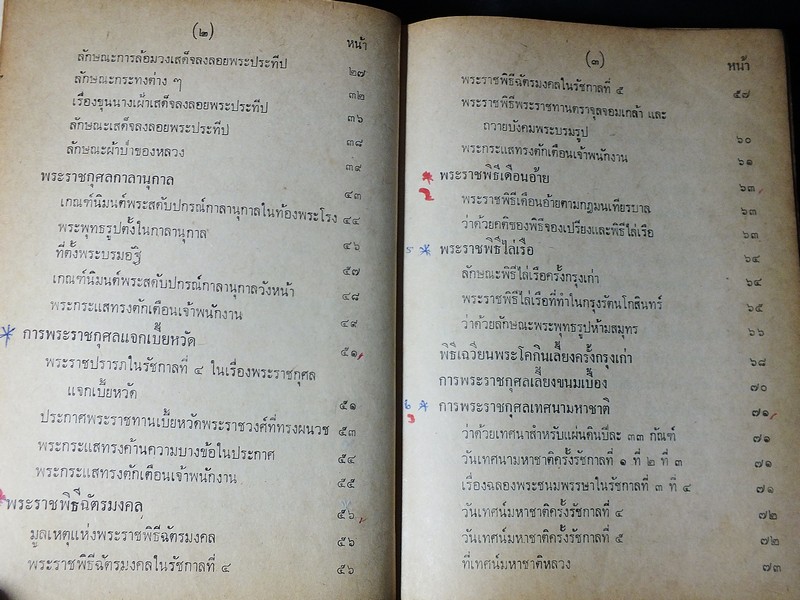 (๒)
หน้า
ลักษณะการล้อมวงเสด็จลงลอยพระประทีป ๒๗
ลักษณะกระทงต่าง ๆ ๓๒
เรื่องขุนนางเฝ้าเสด็จลงลอยพระประทีป ๓๖
ลักษณะเสด็จลงลอยพระประทีป ๓๘
ลักษณะผ้าป่าของหลวง ๓๙
พระราชกุศลกาลานุกาล ๔๓
เกณฑ์นิมนต์พระสดับปกรณ์กาลานุกาลในท้องพระโรง ๔๔
พระพุทธรูปตั้งในกาลานุกาล ๔๖
ที่ตั้งพระบรมอัฐิ ๔๗
เกณฑ์นิมนต์พระสดับปกรณ์กาลานุกาลวังหน้า ๔๘
พระกระแสทรงตักเตือนเจ้าพนักงาน ๔๙
การพระราชกุศลแจกเบี้ยหวัด ๕๑
พระราชปรารภในรัชกาลที่ ๔ ในเรื่องพระราชกุศล
แจกเบี้ยหวัด ๕๑
ประกาศพระราชทานเบี้ยหวัดพระราชวงศ์ที่ทรงผนวช ๕๓
พระกระแสทรงค้านความบางข้อในประกาศ ๕๔
พระกระแสทรงตักเตือนเจ้าพนักงาน ๕๕
พระราชพิธีฉัตรมงคล ๕๖
มูลเหตุแห่งพระราชพิธีฉัตรมงคล ๕๖
พระราชพิธีฉัตรมงคลในรัชกาลที่ ๔ ๕๖
(๓)
หน้า
พระราชพิธีฉัตรมงคลในรัชกาลที่ ๕ ๕๗
พระราชพิธีพระราชทานตราจุลจอมเกล้า และ
ถวายบังคมพระบรมรูป ๖๐
พระกระแสทรงตักเตือนเจ้าพนักงาน ๖๑
พระราชพิธีเดือนอ้าย ๖๓
พระราชพิธีเดือนอ้ายตามกฎมนเทียรบาล ๖๓
ว่าด้วยคติของพิธีจองเปรียงและพิธีไล่เรือ ๖๓
๕ พระราชพิธีไล่เรือ ๖๔
ลักษณะพิธีไล่เรือครั้งกรุงเก่า ๖๔
พระราชพิธีไล่เรือที่ทำในกรุงรัตนโกสินทร์ ๖๕
ว่าด้วยลักษณะพระพุทธรูปห้ามสมุทร ๖๖
พิธีเฉวียนพระโคกินเลี้ยงครั้งกรุงเก่า ๖๘
การพระราชกุศลเลี้ยงขนมเบื้อง ๗๐
๖ การพระราชกุศลเทศนามหาชาติ ๗๑
ว่าด้วยเทศนาสำหรับแผ่นดินปีละ ๓๓ กัณฑ์ ๗๑
วันเทศนามหาชาติครั้งรัชกาลที่ ๑ ที่ ๒ ที่ ๓ ๗๑
เรื่องฉลองพระชนมพรรษาในรัชกาลที่ ๓ ที่ ๔ ๗๑
วันเทศน์มหาชาติครั้งรัชกาลที่ ๔ ๗๒
วันเทศน์มหาชาติครั้งรัชกาลที่ ๕ ๗๒
ที่เทศน์มหาชาติหลวง ๗๓